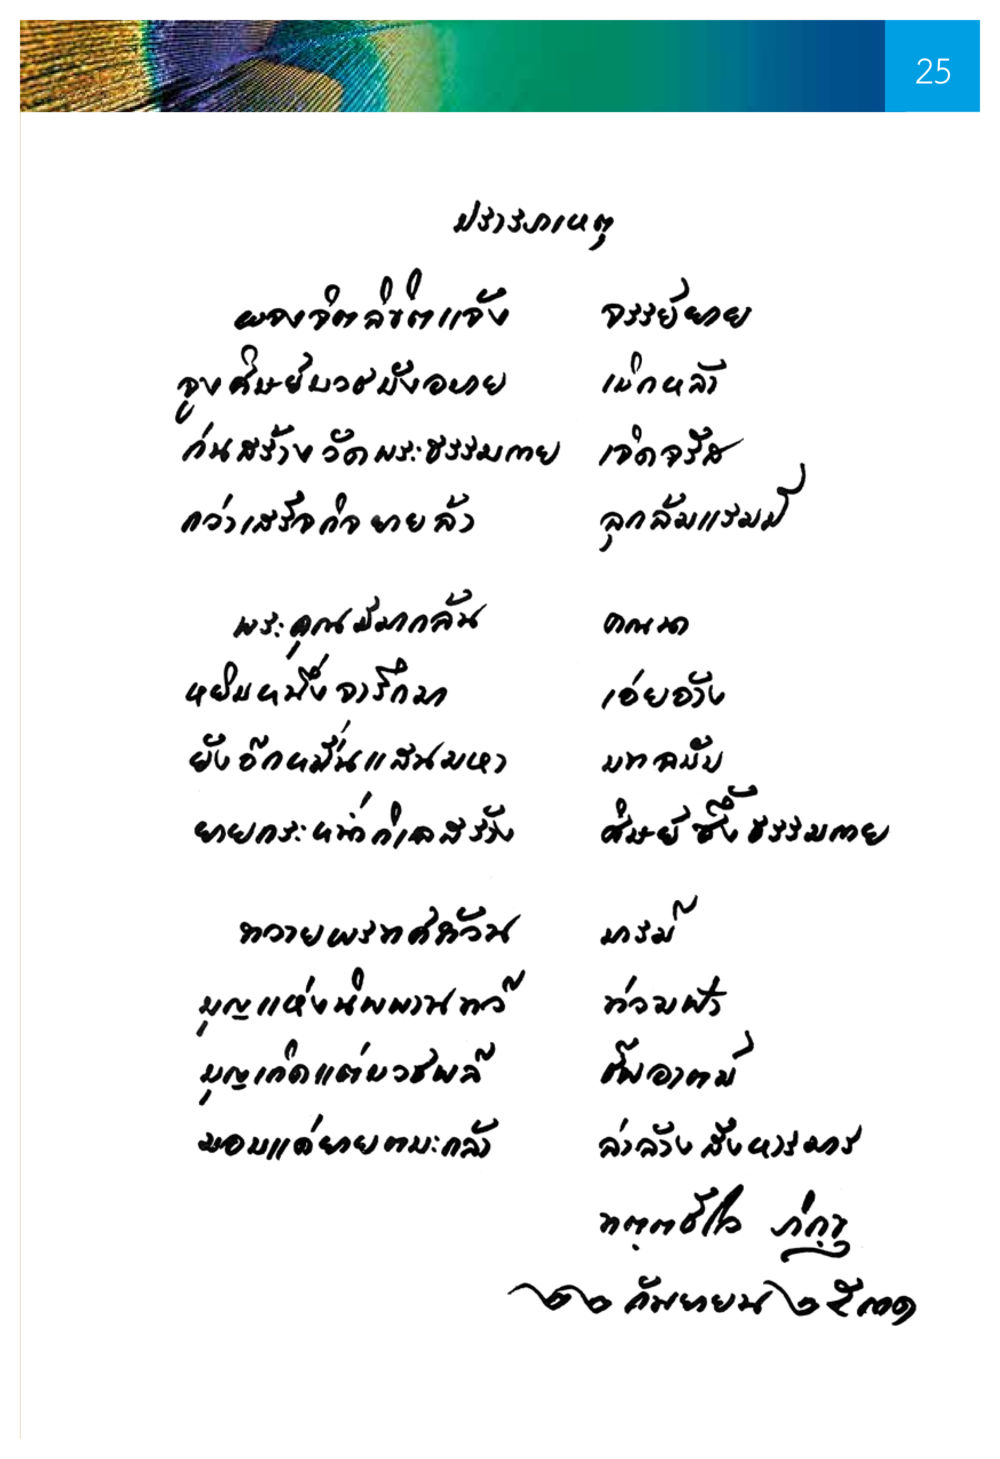 25
ปรารภเหตุ
ผจงจิตลิขิตแจ้ง จรรย์ยาย
จูงศิษย์บวชมั่งอบาย เบิกหล้า
ก่นสร้างวัดพระธรรมกาย เจิดจรัส
กว่าเสร็จกิจยายล้า ลุกล้มแรมปี
พระคุณมีมากล้น คณนา
หยิบหนึ่งจารึกมา เอ่ยอ้าง
ยังอีกหมื่นแสนมหา มากฉบับ
ยายกระหน่ำกิเลสร้าง ศิษย์ซึ้งธรรมกาย
ถวายพรทศทิวัน บารมี
บุญแห่งนิพพานทวี ท่วมฟ้า
บุญเกิดแต่บวชพลี ชีพอาตม์
มอบแด่ยายตบะกล้า ล่าล้างสังหารมาร
ทตฺตชีโว ภิกฺขุ
๒๖ กันยายน ๒๕๓๑